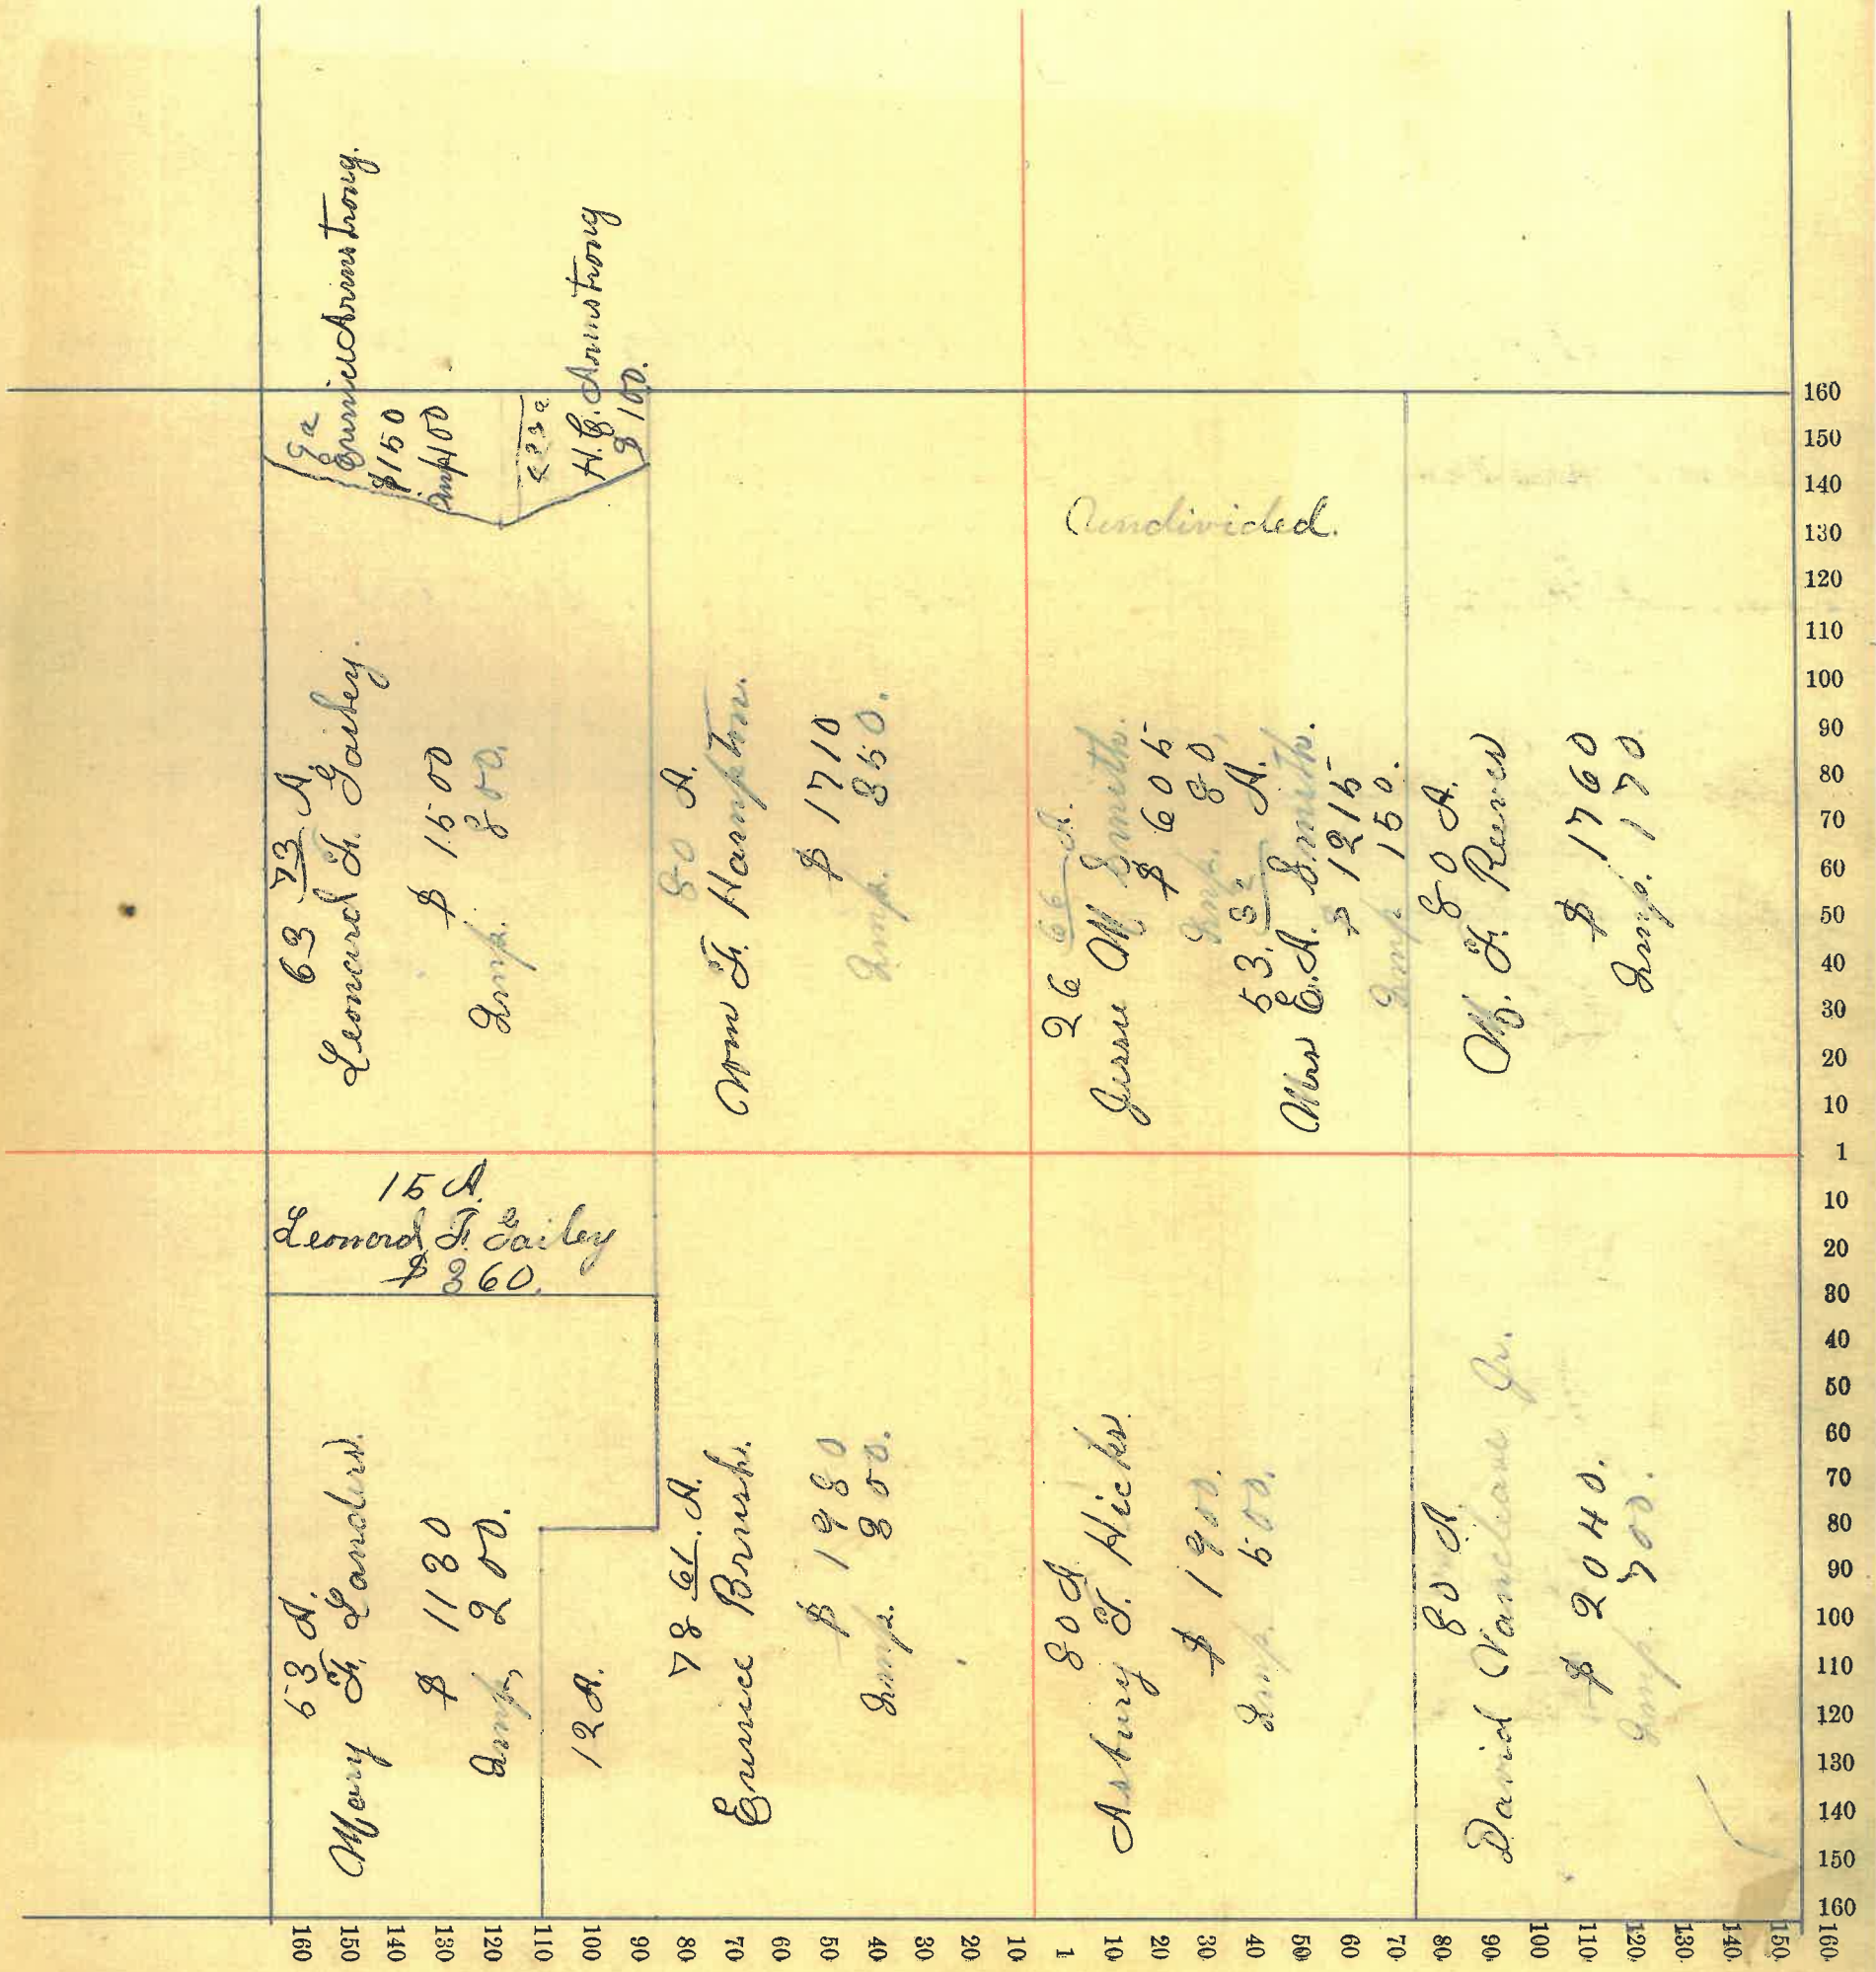 9 a
Eunice Armstrong.
$150
Imp 100
H. C. Armstrong
$100.
63 73/ A.
Leonard F. Gailey.
$ 1500
Imp. 800.
80 A.
Wm F. Hampton.
$ 1710
Imp. 350.
undivided.
26 66/ A.
Jesse M Smith.
$ 605
Imp. 80.
53. 3/ A.
Mrs E. A. Smith.
$ 1215
Imp 150.
80 A.
M. F. Reeves
$ 1760
Imp. 170
15 A.
Leonard F. Gailey
$ 360.
53 A.
Mary F. Landers.
$ 1130
Imp, 200.
12 A.
78 61/. A.
Eunice Brush.
$ 1980
Imp. 300.
80 A
Asbury T. Hicks.
$ 1900.
Imp. 500.
80 A
David Vancleave Jr.
$ 2040.
Imp. 700.
160
150
140
130
120
110
100
90
80
70
60
50
40
30
20
10
1
10
20
30
40
50
60
70
80
90
100
110
120
130
140
150
160
160
150
140
130
120
110
100
90
80
70
60
50
40
30
20
10
1
10
20
30
40
50
60
70
80
90
100
110
120
130
140
150
160